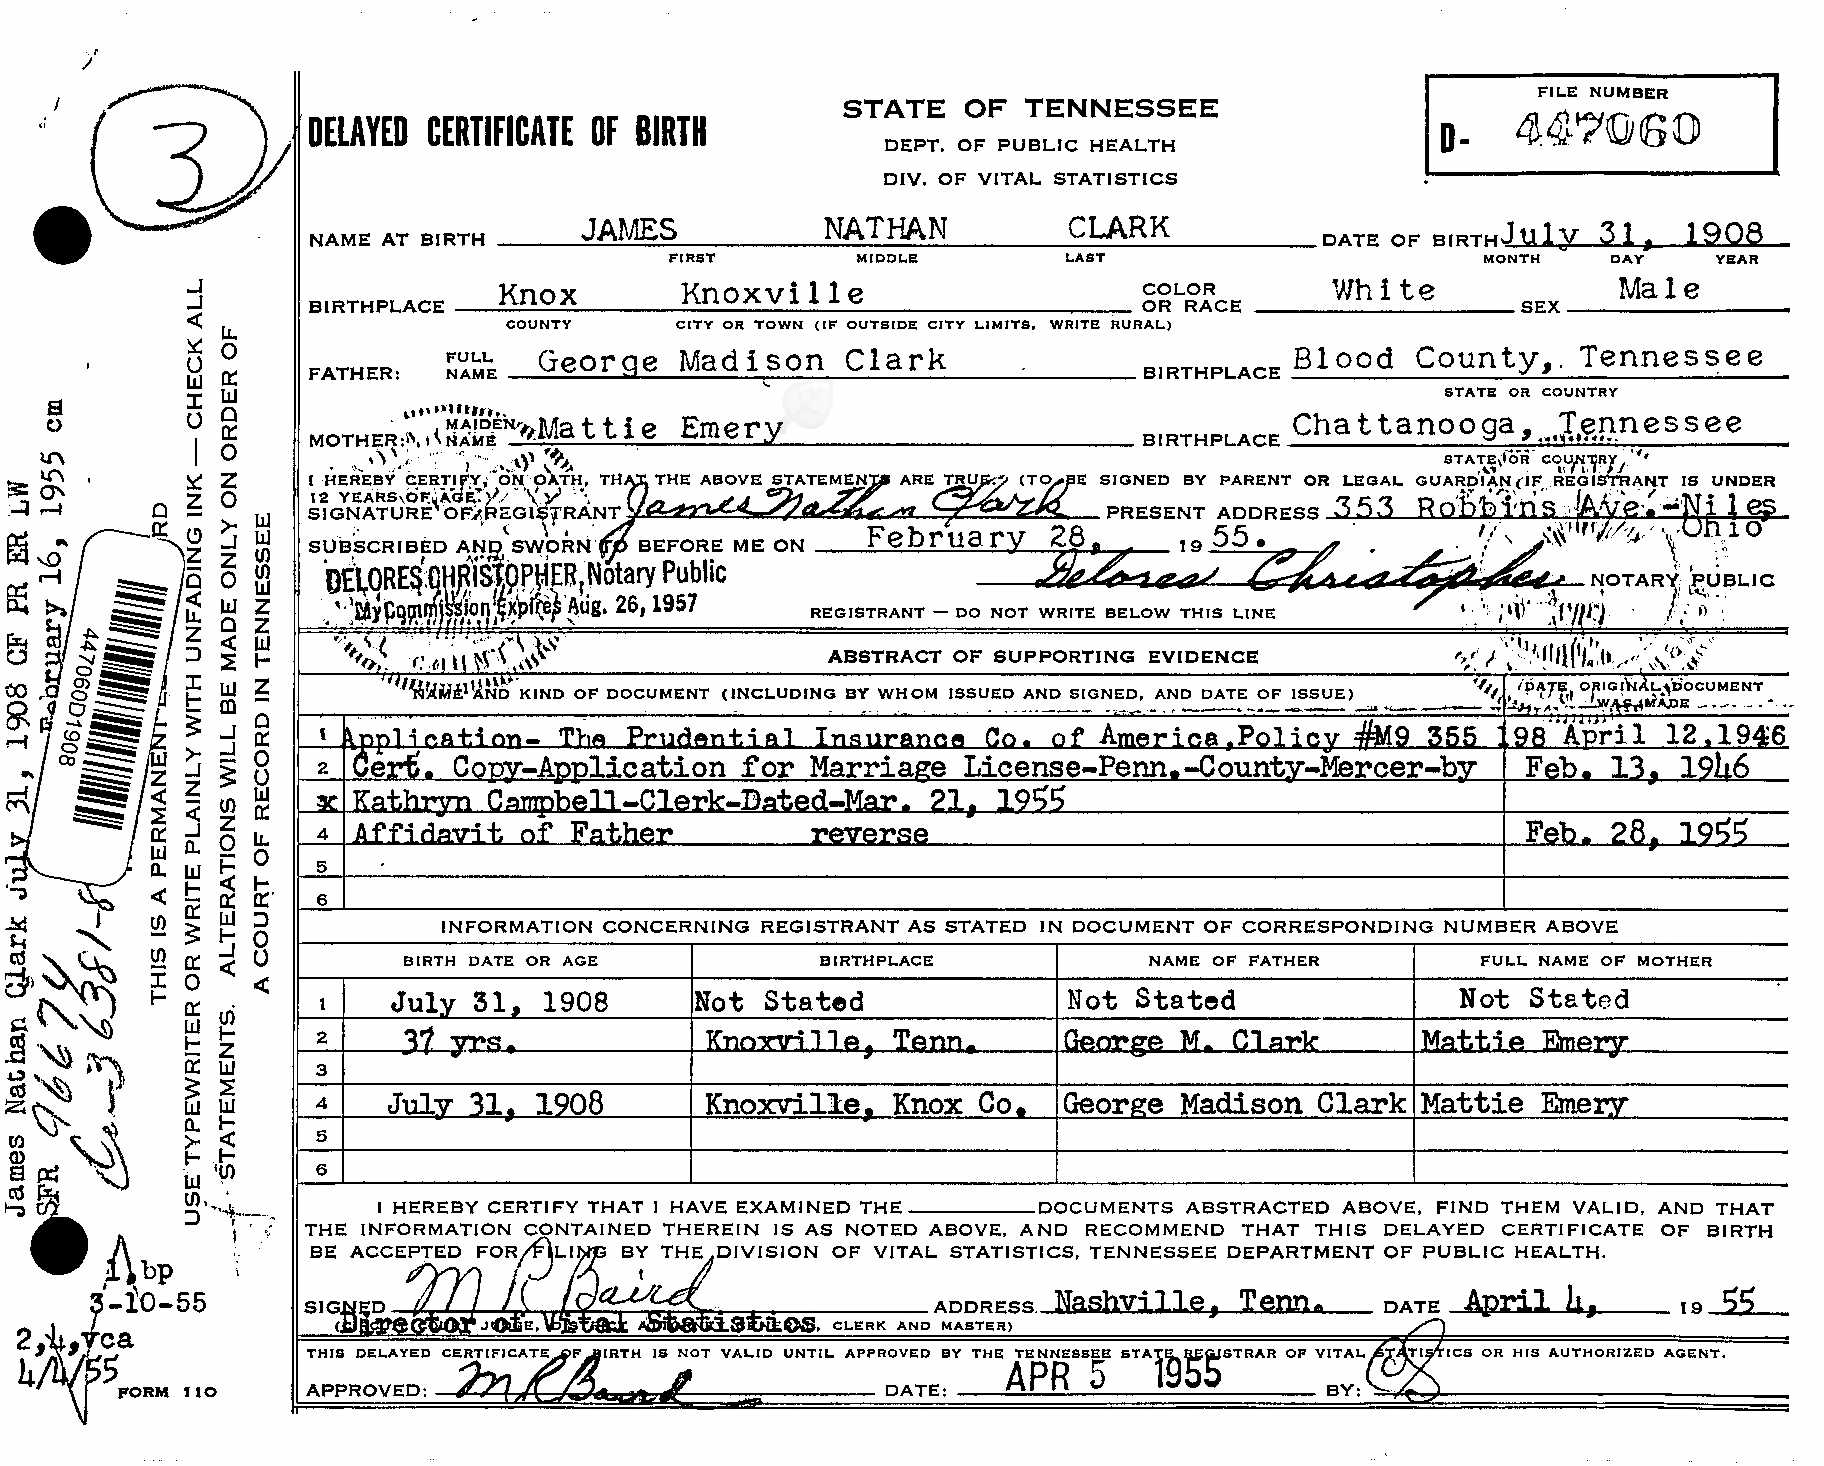 3
DELAYED CERTIFICATE OF BIRTH
STATE OF TENNESSEE
DEPT. OF PUBLIC HEALTH
DIV. OF VITAL STATISTICS
FILE NUMBER
D- 447060
NAME AT BIRTH JAMES NATHAN CLARK DATE OF BIRTH July 31, 1908
FIRST MIDDLE LAST MONTH DAY YEAR
BIRTHPLACE Knox Knoxville COLOR OR RACE White SEX Male
COUNTY CITY OR TOWN (IF OUTSIDE CITY LIMITS, WRITE RURAL)
FATHER: FULL NAME George Madison Clark BIRTHPLACE Blood County,. Tennessee
STATE OR COUNTRY
MOTHER: MAIDEN NAME Mattie Emery BIRTHPLACE Chattanooga, Tennessee
STATE OR COUNTRY
I HEREBY CERTIFY, ON OATH, THAT THE ABOVE STATEMENTS ARE TRUE. (TO BE SIGNED BY PARENT OR LEGAL GUARDIAN IF REGISTRANT IS UNDER
12 YEARS OF AGE.)
SIGNATURE OF REGISTRANT James Nathan Clark PRESENT ADDRESS 353 Robbins Ave.-Niles
Ohio
SUBSCRIBED AND SWORN TO BEFORE ME ON February 28, 19 55.
DELORES CHRISTOPHER, Notary Public Delores Christopher NOTARY PUBLIC
My Commission Expires Aug. 26, 1957
REGISTRANT — DO NOT WRITE BELOW THIS LINE
ABSTRACT OF SUPPORTING EVIDENCE
NAME AND KIND OF DOCUMENT (INCLUDING BY WHOM ISSUED AND SIGNED, AND DATE OF ISSUE) DATE ORIGINAL DOCUMENT
WAS MADE
1 Application- The Prudential Insurance Co. of America,Policy #M9 355 198 April 12,1946
2 Cert. Copy-Application for Marriage License-Penn.-County-Mercer-by Feb. 13, 1946
x Kathryn Campbell-Clerk-Dated-Mar. 21, 1955
4 Affidavit of Father reverse Feb. 28, 1955
5
6
INFORMATION CONCERNING REGISTRANT AS STATED IN DOCUMENT OF CORRESPONDING NUMBER ABOVE
BIRTH DATE OR AGE BIRTHPLACE NAME OF FATHER FULL NAME OF MOTHER
1 July 31, 1908 Not Stated Not Stated Not Stated
2 37 yrs. Knoxville, Tenn. George M. Clark Mattie Emery
3
4 July 31, 1908 Knoxville, Knox Co. George Madison Clark Mattie Emery
5
6
I HEREBY CERTIFY THAT I HAVE EXAMINED THE DOCUMENTS ABSTRACTED ABOVE, FIND THEM VALID, AND THAT
THE INFORMATION CONTAINED THEREIN IS AS NOTED ABOVE, AND RECOMMEND THAT THIS DELAYED CERTIFICATE OF BIRTH
BE ACCEPTED FOR FILING BY THE DIVISION OF VITAL STATISTICS, TENNESSEE DEPARTMENT OF PUBLIC HEALTH.
SIGNED M R Baird ADDRESS Nashville, Tenn. DATE April 4, 19 55
Director of Vital Statistics CLERK AND MASTER)
THIS DELAYED CERTIFICATE OF BIRTH IS NOT VALID UNTIL APPROVED BY THE TENNESSEE STATE REGISTRAR OF VITAL STATISTICS OR HIS AUTHORIZED AGENT.
APPROVED: M R Baird DATE: APR 5 1955 BY:
FORM 110
James Nathan Clark July 31, 1908 CF PR ER LW
SFR February 16, 1955 cm
966774
Cen-36381-8
447060D1908
THIS IS A PERMANENT
USE TYPEWRITER OR WRITE PLAINLY WITH UNFADING INK — CHECK ALL
STATEMENTS. ALTERATIONS WILL BE MADE ONLY ON ORDER OF
A COURT OF RECORD IN TENNESSEE
1, bp
3-10-55
2,4,yca
4/4/55